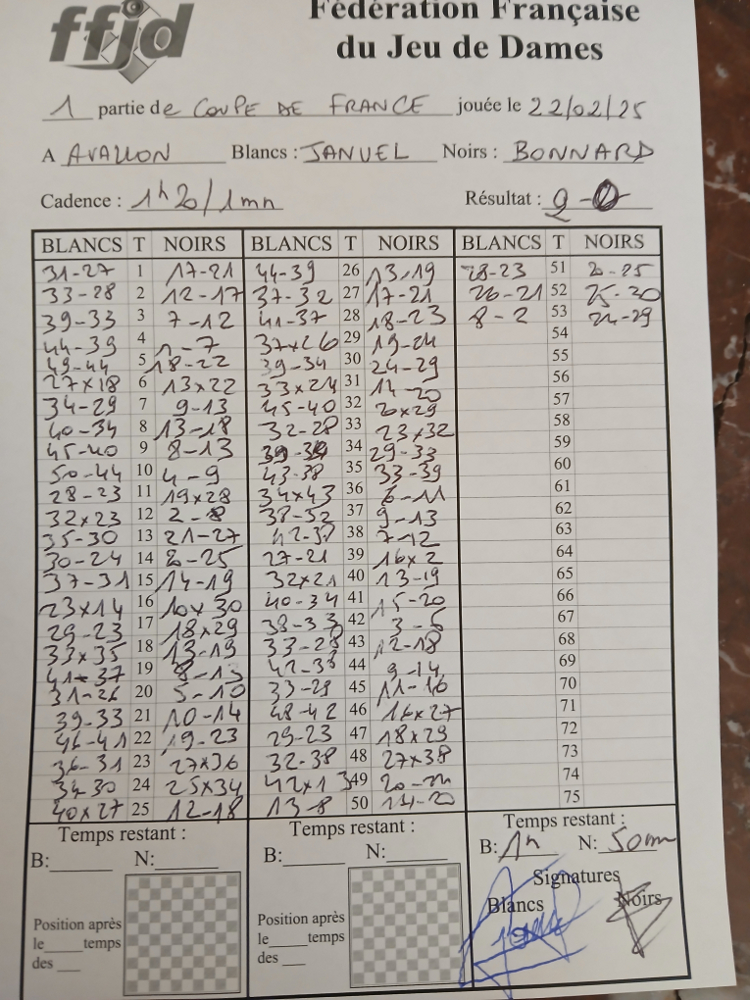 ffjd
Fédération Française
du Jeu de Dames
1 partie de COUPE DE FRANCE jouée le 22/02/25
A AVALLON Blancs : JANUEL Noirs : BONNARD
Cadence : 1h20/1mn Résultat : 2-0
BLANCS T NOIRS BLANCS T NOIRS BLANCS T NOIRS
31-27 1 17-21 44-39 26 13-19 28-23 51 20-25
33-28 2 12-17 37-32 27 17-21 26-21 52 25-30
39-33 3 7-12 41-37 28 18-23 8-2 53 24-29
44-39 4 1-7 37x26 29 19-24 54
49-44 5 18-22 39-34 30 24-29 55
27x18 6 13x22 33x24 31 14-20 56
34-29 7 9-13 45-40 32 20x29 57
40-34 8 13-18 32-28 33 23x32 58
45-40 9 8-13 34 29-33 59
50-44 10 4-9 43-38 35 33-39 60
28-23 11 19x28 34x43 36 6-11 61
32x23 12 2-8 38-32 37 9-13 62
35-30 13 21-27 42-37 38 7-12 63
30-24 14 20-25 27-21 39 16x2 64
37-31 15 14-19 32x21 40 13-19 65
23x14 16 10x30 40-34 41 15-20 66
29-23 17 18x29 38-33 42 67
33x35 18 13-19 33-28 43 12-18 68
41-37 19 8-13 44 9-14 69
31-26 20 5-10 33-29 45 11-16 70
39-33 21 10-14 48-42 46 16x27 71
46-41 22 19-23 29-23 47 18x29 72
36-31 23 27x36 32-38 48 27x38 73
34-30 24 25x34 42x13 49 20-24 74
40x27 25 12-18 13-8 50 14-20 75
Temps restant : Temps restant : Temps restant :
B: N: B: N: B: 1h N: 50mn
Signatures
Blancs Noirs
Position après
le temps
des
Position après
le temps
des